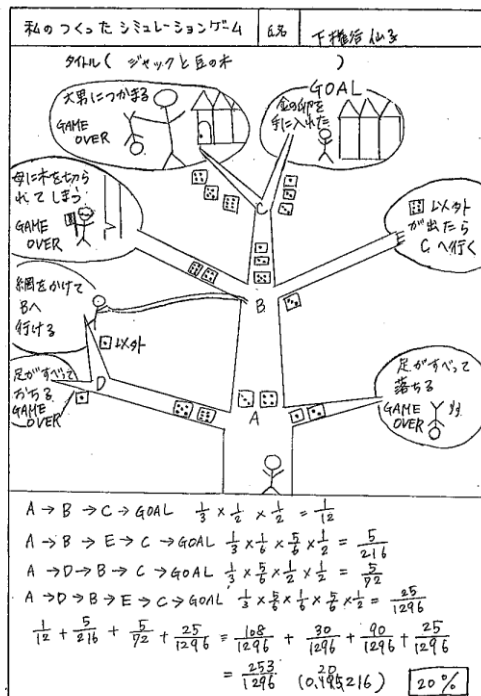 私のつくった シミュレーションゲーム 氏名 下権谷 仙子
タイトル ( ジャックと豆の木 )
大男につかまる
GAME
OVER
GOAL
金の卵を
手に入れた
母に木を切ら
れてしまう
GAME
OVER
以外
が出たら
Cへ行く
C
B
綱をかけて
Bへ
行ける
以外
足がすべって
おちる
GAME
OVER
D
A
足がすべって
落ちる
GAME
OVER
A → B → C → GOAL 1/3 × 1/2 × 1/2 = 1/12
A → B → E → C → GOAL 1/3 × 1/6 × 5/6 × 1/2 = 5/216
A → D → B → C → GOAL 1/3 × 5/6 × 1/2 × 1/2 = 5/72
A → D → B → E → C → GOAL 1/3 × 5/6 × 1/6 × 5/6 × 1/2 = 25/1296
1/12 + 5/216 + 5/72 + 25/1296 = 108/1296 + 30/1296 + 90/1296 + 25/1296
= 253/1296 (0.195216) 20%